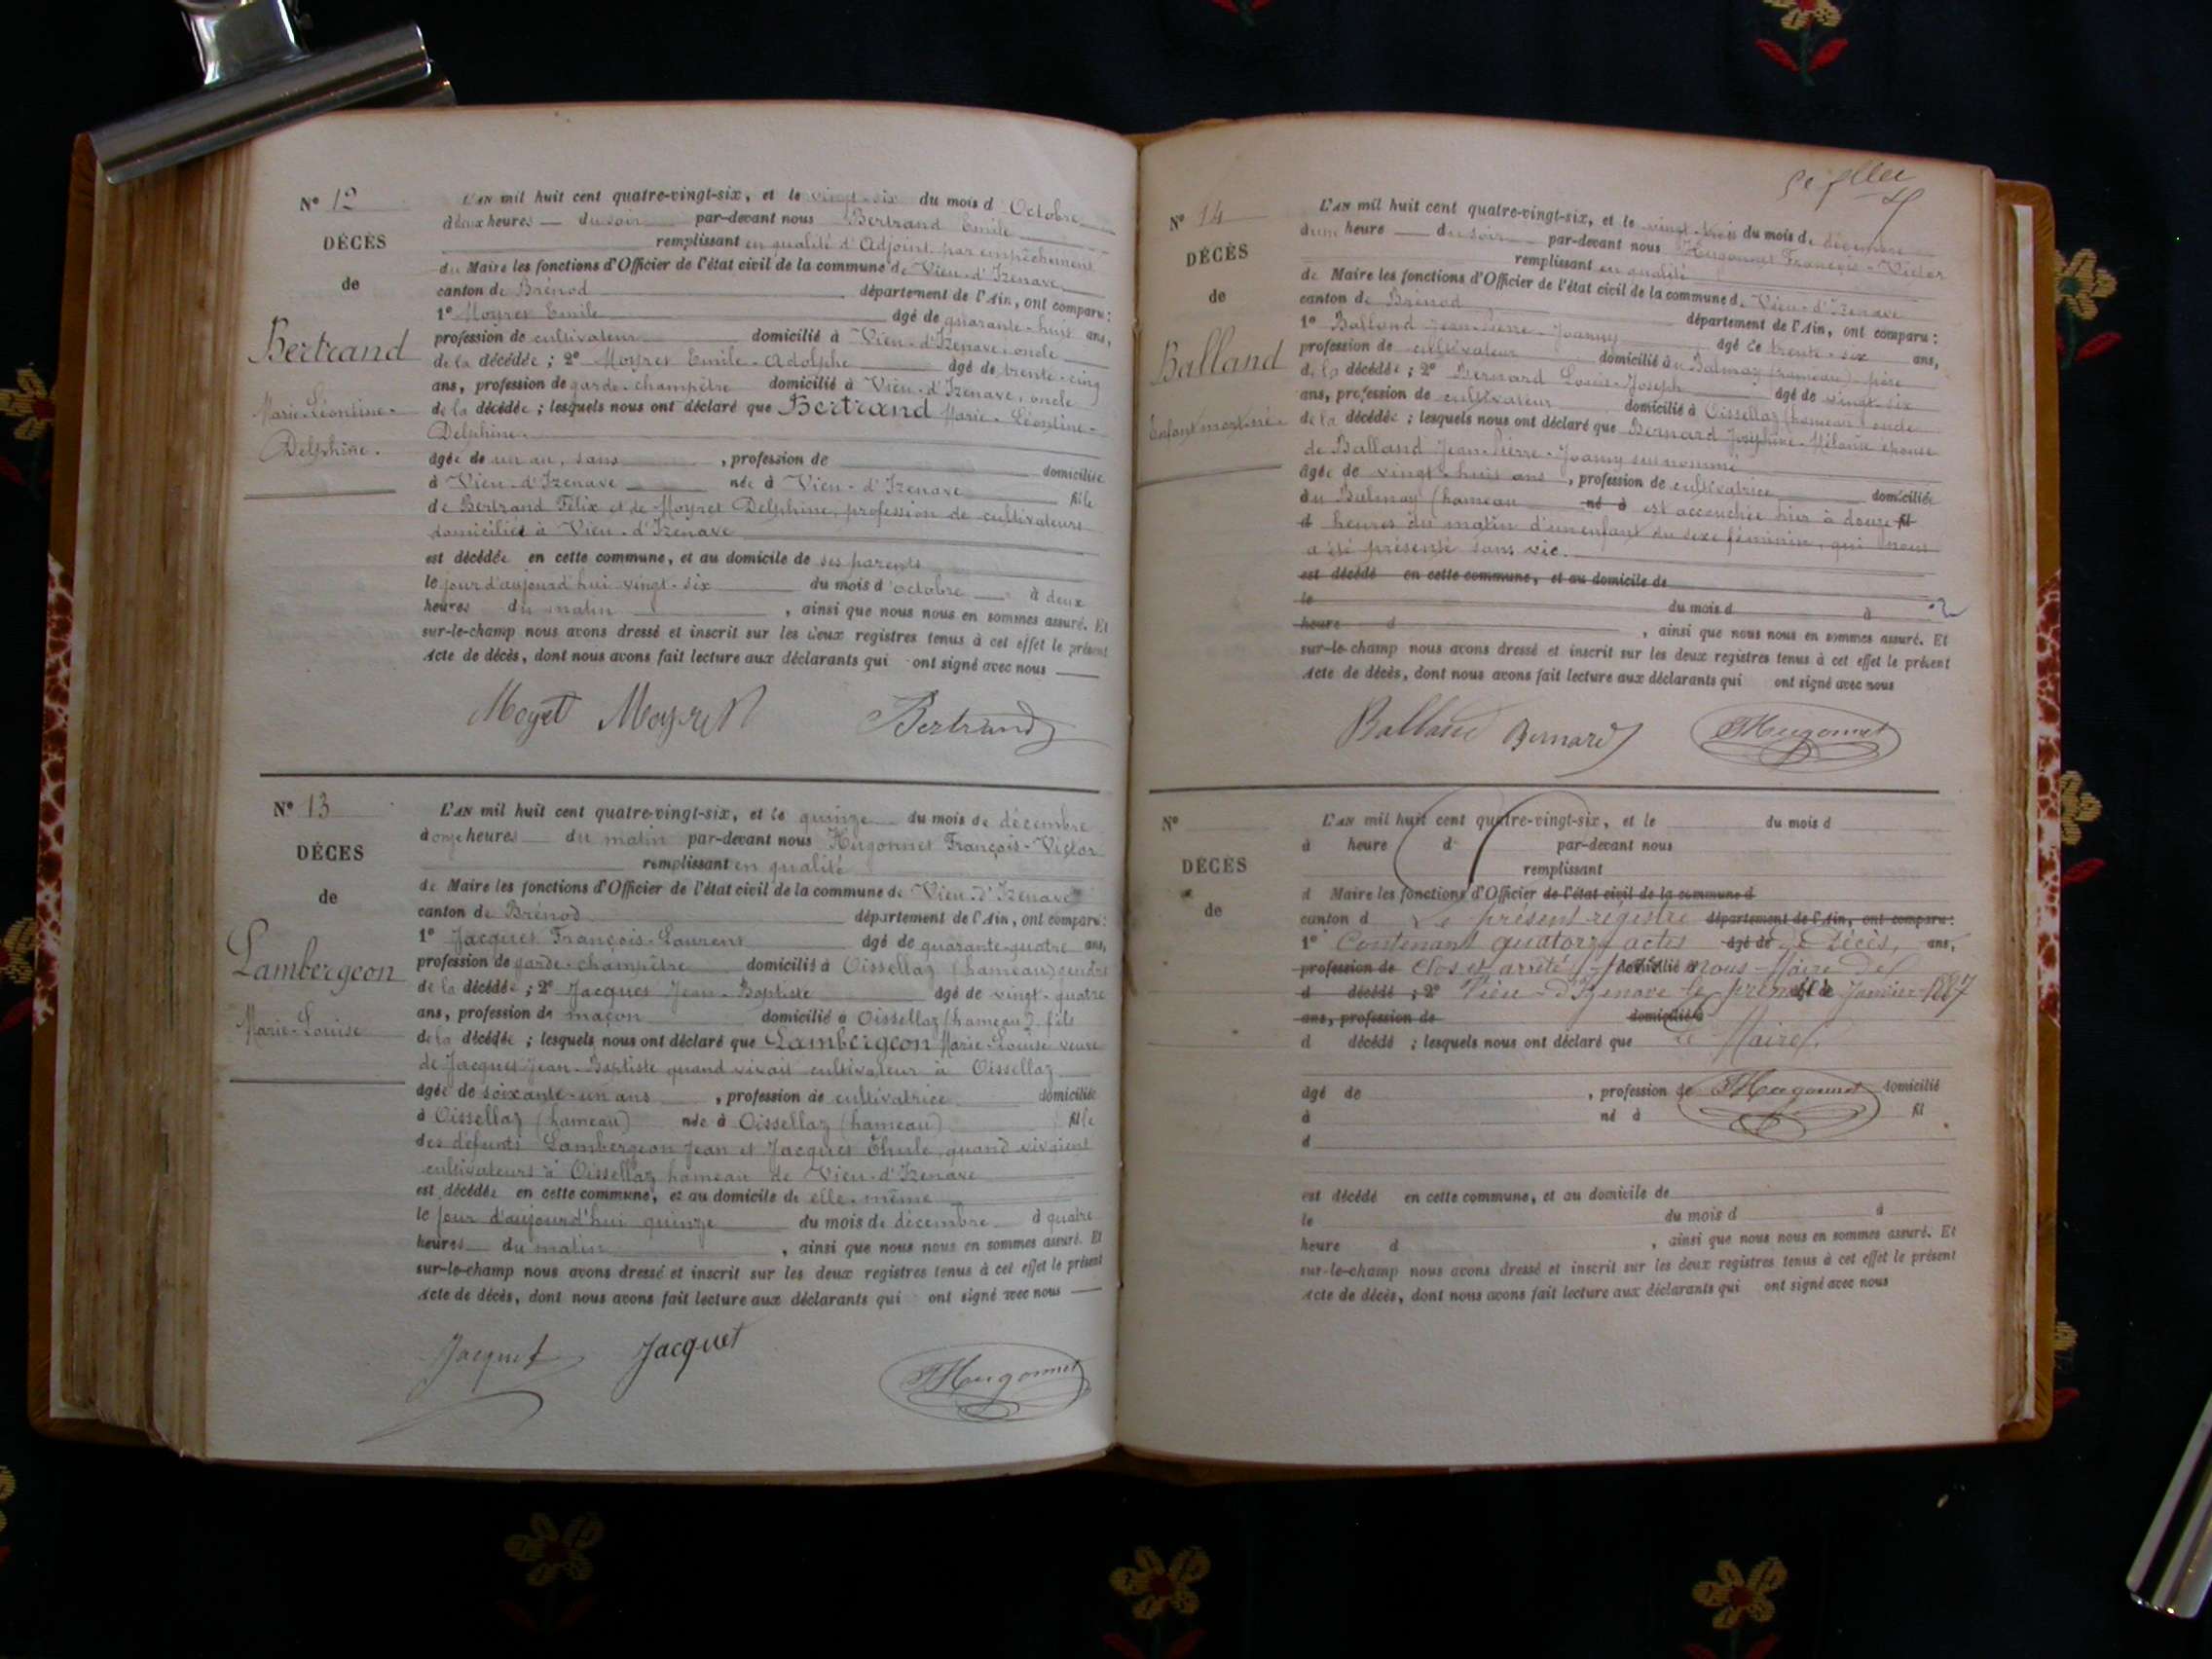 N° 12
DÉCÈS
de
Bertrand
Marie-Léontine-
Delphine.
L'AN mil huit cent quatre-vingt-six, et le vingt-six du mois d'Octobre
à deux heures — du soir par-devant nous Bertrand Emile
remplissant en qualité d'Adjoint par empêchement
du Maire les fonctions d'Officier de l'état civil de la commune de Vieu-d'Izenave
canton de Brénod département de l'Ain, ont comparu :
1° Moyret Emile âgé de quarante-huit ans,
profession de cultivateur domicilié à Vieu-d'Izenave, oncle
de la décédée ; 2° Moyret Emile-Adolphe âgé de trente-cinq
ans, profession de garde-champêtre domicilié à Vieu-d'Izenave, oncle
de la décédée ; lesquels nous ont déclaré que Bertrand Marie-Léontine-
Delphine.
âgée de un an, sans , profession de domiciliée
à Vieu-d'Izenave née à Vieu-d'Izenave fille
de Bertrand Félix et de Moyret Delphine, profession de cultivateurs
domiciliés à Vieu-d'Izenave
est décédée en cette commune, et au domicile de ses parents
le jour d'aujourd'hui vingt-six du mois d'octobre à deux
heures du matin , ainsi que nous nous en sommes assuré. Et
sur-le-champ nous avons dressé et inscrit sur les deux registres tenus à cet effet le présent
Acte de décès, dont nous avons fait lecture aux déclarants qui ont signé avec nous
Moyret Moyret Bertrand
N° 13
DÉCÈS
de
Lambergeon
Marie-Louise
L'AN mil huit cent quatre-vingt-six, et le quinze du mois de décembre
à onze heures du matin par-devant nous Hugonnet François-Victor
remplissant en qualité
de Maire les fonctions d'Officier de l'état civil de la commune de Vieu-d'Izenave
canton de Brénod département de l'Ain, ont comparu :
1° Jacquet François-Laurent âgé de quarante-quatre ans,
profession de garde-champêtre domicilié à Oissellaz (hameau) gendre
de la décédée ; 2° Jacquet Jean-Baptiste âgé de vingt-quatre
ans, profession de maçon domicilié à Oissellaz (hameau), fils
de la décédée ; lesquels nous ont déclaré que Lambergeon Marie-Louise veuve
de Jacquet Jean-Baptiste quand vivait cultivateur à Oissellaz
âgée de soixante-un ans , profession de cultivatrice domiciliée
à Oissellaz (hameau) née à Oissellaz (hameau) fille
des défunts Lambergeon Jean et Jacquet quand vivaient
cultivateurs à Oissellaz hameau de Vieu-d'Izenave
est décédée en cette commune, et au domicile de elle-même
le jour d'aujourd'hui quinze du mois de décembre à quatre
heures du matin , ainsi que nous nous en sommes assuré. Et
sur-le-champ nous avons dressé et inscrit sur les deux registres tenus à cet effet le présent
Acte de décès, dont nous avons fait lecture aux déclarants qui ont signé avec nous
Jacquet Jacquet Hugonnet
N° 14
DÉCÈS
de
Balland
Enfant mort-né.
L'AN mil huit cent quatre-vingt-six, et le vingt-trois du mois de décembre
à une heure du soir par-devant nous Hugonnet François-Victor
remplissant en qualité
de Maire les fonctions d'Officier de l'état civil de la commune de Vieu-d'Izenave
canton de Brénod département de l'Ain, ont comparu :
1° Balland Jean-Pierre-Joanny âgé de trente-six ans,
profession de cultivateur domicilié à Balmay (hameau) père
de la décédée ; 2° Bernard Louis-Joseph âgé de vingt-six
ans, profession de cultivateur domicilié à Oissellaz (hameau) oncle
de la décédée ; lesquels nous ont déclaré que Bernard Joséphine-Mélanie épouse
de Balland Jean-Pierre-Joanny susnommé
âgée de vingt-huit ans , profession de cultivatrice domiciliée
au Balmay (hameau né à est accouchée hier à douze fil
d heures du matin d'un enfant du sexe féminin, qui nous
a été présenté sans vie.
est décédé en cette commune, et au domicile de
le du mois d à
heure d , ainsi que nous nous en sommes assuré. Et
sur-le-champ nous avons dressé et inscrit sur les deux registres tenus à cet effet le présent
Acte de décès, dont nous avons fait lecture aux déclarants qui ont signé avec nous
Balland Bernard Hugonnet
N°
DÉCÈS
de
L'AN mil huit cent quatre-vingt-six, et le du mois d
à heure d par-devant nous
remplissant
d Maire les fonctions d'Officier de l'état civil de la commune d
canton d Le présent registre département de l'Ain, ont comparu :
1° Contenant quatorze actes âgé de de Décès, ans,
profession de Clos et arrêté domicilié à nous Maire de
d décédé ; 2° Vieu-d'Izenave le premier Janvier 1887
ans, profession de domicilié à
d décédé ; lesquels nous ont déclaré que Le Maire
âgé de , profession de Hugonnet domicilié
à né à fil
d
est décédé en cette commune, et au domicile de
le du mois d à
heure d , ainsi que nous nous en sommes assuré. Et
sur-le-champ nous avons dressé et inscrit sur les deux registres tenus à cet effet le présent
Acte de décès, dont nous avons fait lecture aux déclarants qui ont signé avec nous